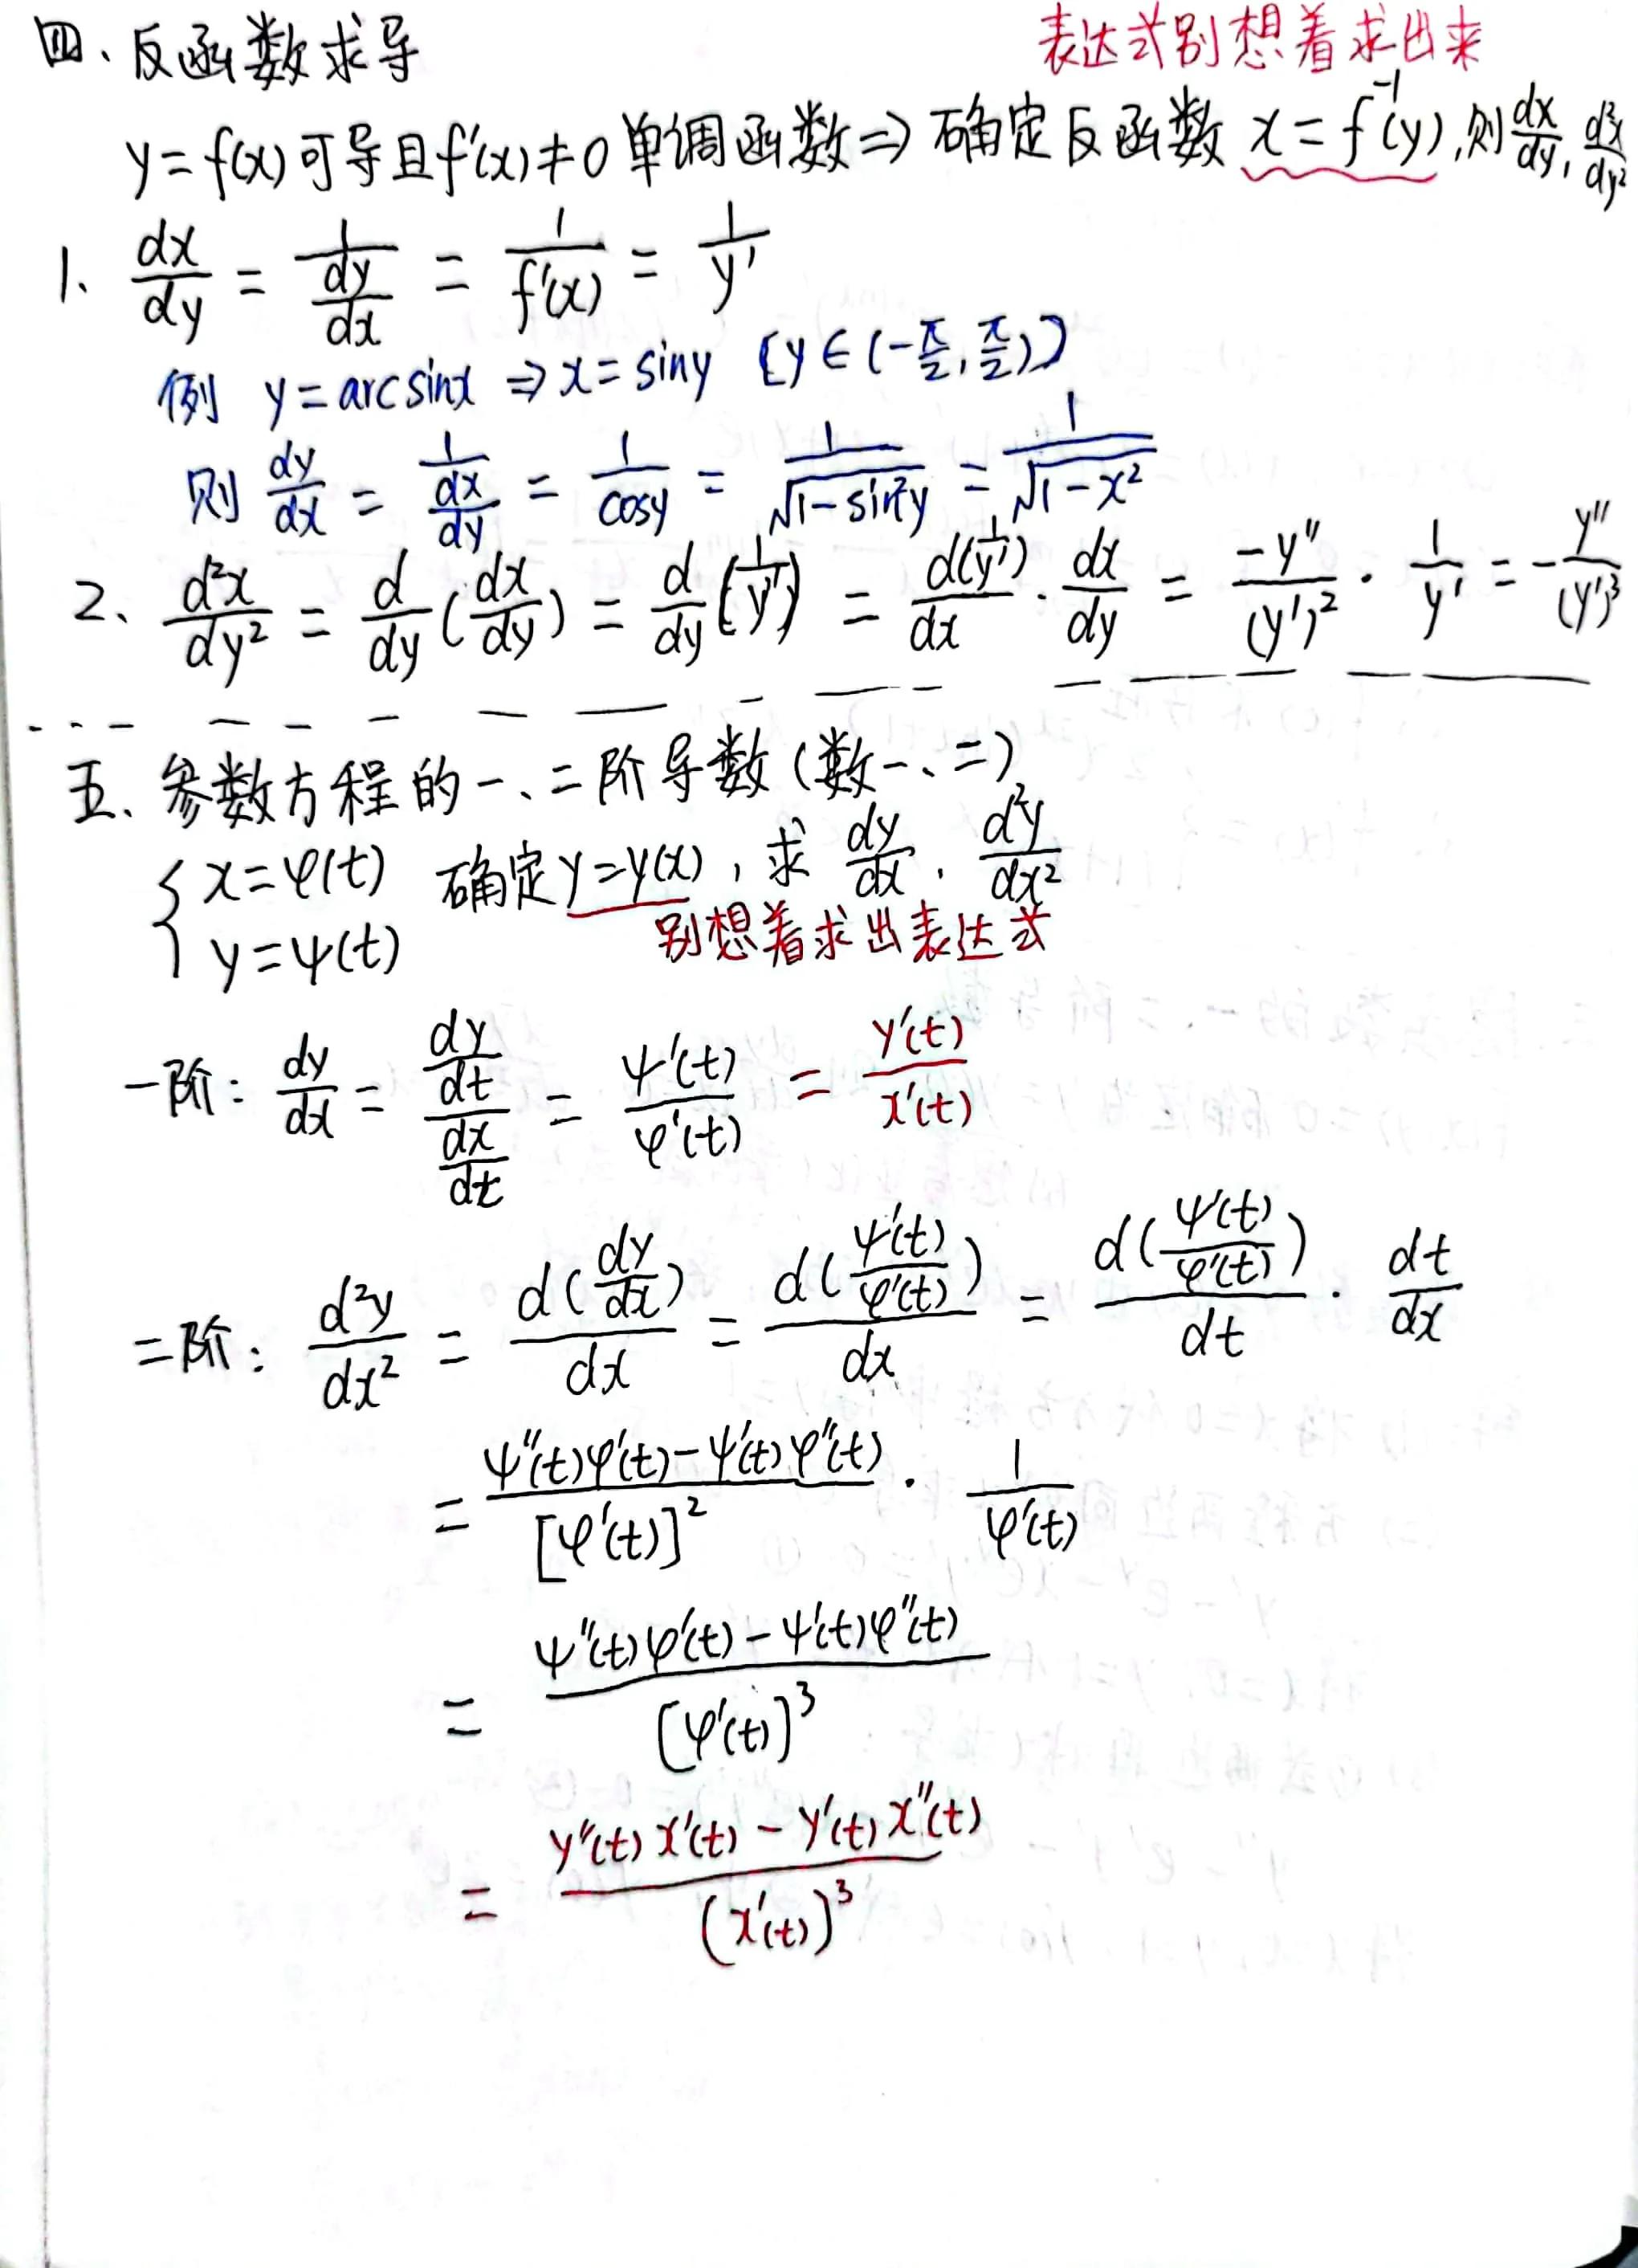 四、反函数求导
表达式别想着求出来
y=f(x)可导且f'(x)≠0单调函数⇒确定反函数 x=f⁻¹(y),则dx/dy, d²x/dy²
1、dx/dy = 1/(dy/dx) = 1/f'(x) = 1/y'
例 y=arcsinx ⇒ x=siny [y∈(-π/2, π/2)]
则 dy/dx = 1/(dx/dy) = 1/cosy = 1/√(1-sin²y) = 1/√(1-x²)
2、d²x/dy² = d/dy(dx/dy) = d/dy(1/y') = d(1/y')/dx · dx/dy = -y''/(y')² · 1/y' = -y''/(y')³
五、参数方程的一、二阶导数(数一、二)
{ x=φ(t) 确定y=y(x), 求 dy/dx, d²y/dx²
y=ψ(t)
别想着求出表达式
一阶: dy/dx = (dy/dt)/(dx/dt) = ψ'(t)/φ'(t) = y'(t)/x'(t)
二阶: d²y/dx² = d(dy/dx)/dx = d(ψ'(t)/φ'(t))/dx = d(ψ'(t)/φ'(t))/dt · dt/dx
= ψ''(t)φ'(t)-ψ'(t)φ''(t)/[φ'(t)]² · 1/φ'(t)
= ψ''(t)φ'(t)-ψ'(t)φ''(t)/[φ'(t)]³
= y''(t)x'(t)-y'(t)x''(t)/(x'(t))³